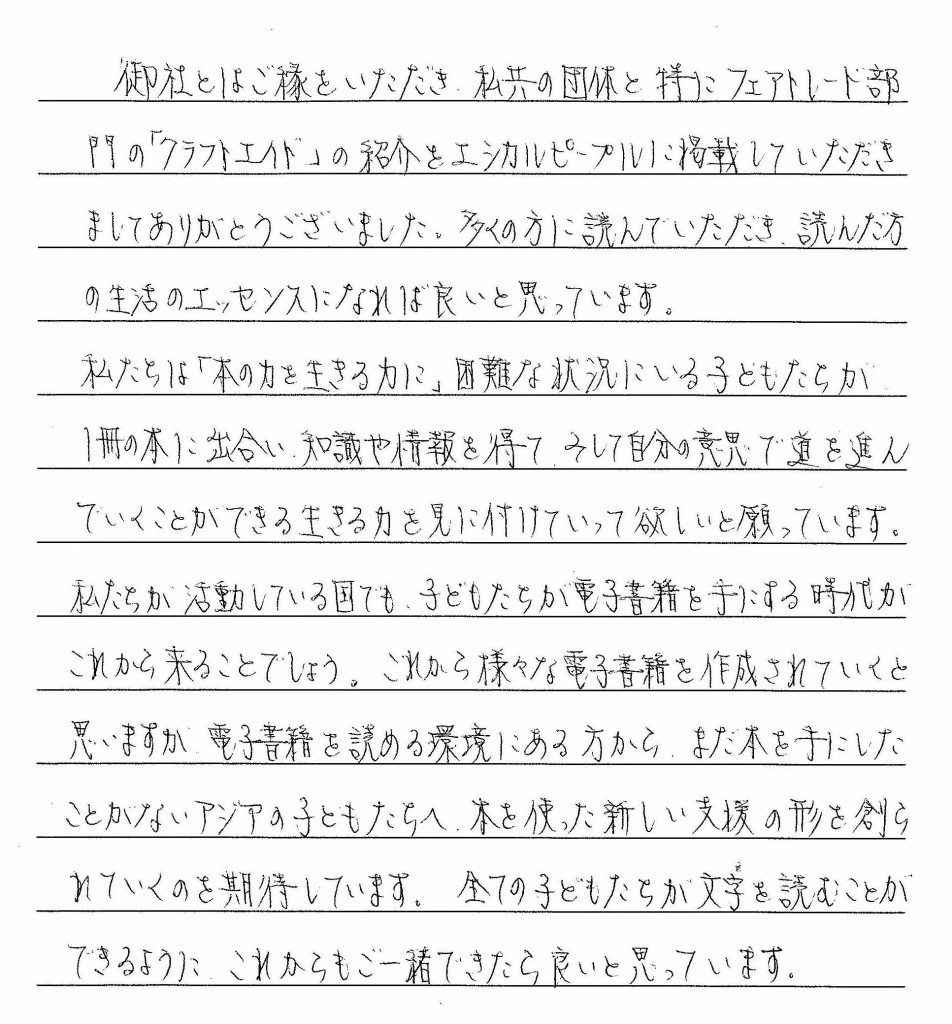 御社とはご縁をいただき、私共の団体と特にフェアトレード部
門の「クラフトエイド」の紹介をエシカルピープルに掲載していただき
ましてありがとうございました。多くの方に読んでいただき、読んだ方
の生活のエッセンスになれば良いと思っています。
私たちは「本の力を生きる力に」困難な状況にいる子どもたちが
1冊の本に出合い、知識や情報を得て、そして自分の意思で道を進ん
でいくことができる生きる力を見に付けていって欲しいと願っています。
私たちが活動している国でも、子どもたちが電子書籍を手にする時代が
これから来ることでしょう。これから様々な電子書籍を作成されていくと
思いますが、電子書籍を読める環境にある方から、まだ本を手にした
ことがないアジアの子どもたちへ、本を使った新しい支援の形を創ら
れていくのを期待しています。全ての子どもたちが文字を読むことが
できるように、これからもご一緒できたら良いと思っています。